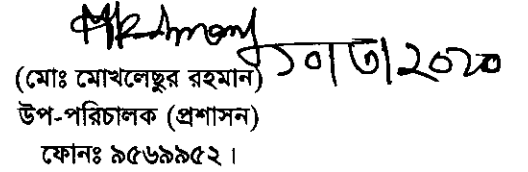 ১০/৩/২০২০
(মোঃ মোখলেছুর রহমান)
উপ-পরিচালক (প্রশাসন)
ফোনঃ ৯৫৬৯৯৫২।